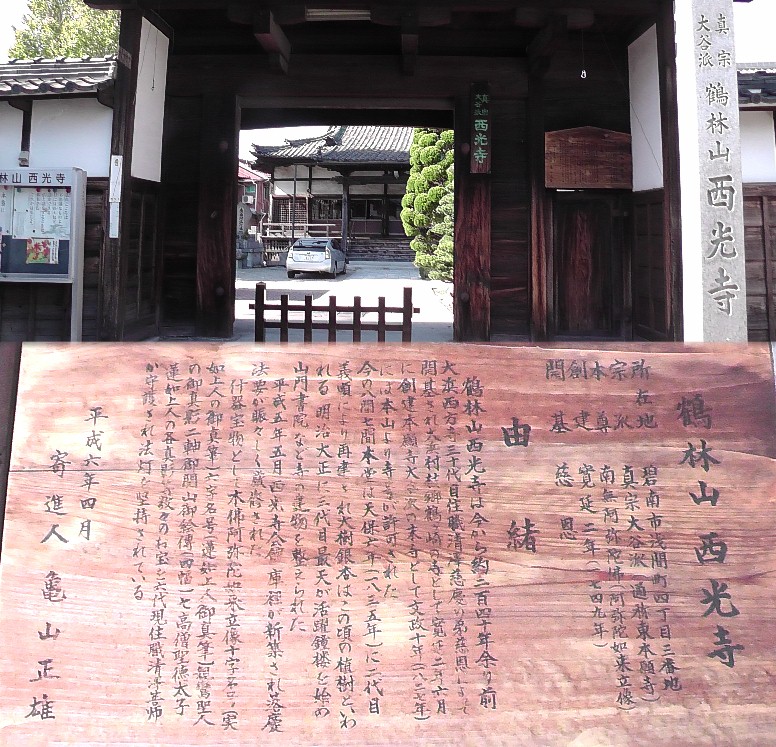 真宗
大谷派
鶴林山 西光寺
真宗
大谷派
西光寺
林山 西光寺
鶴林山 西光寺
所在地 碧南市浅間町四丁目三番地
宗派 真宗大谷派(通称東本願寺)
本尊 南無阿弥陀佛(阿弥陀如来立像)
創建 寛延二年(一七四九年)
開基 慈恩
由緒
鶴林山西光寺は今から約二百四十年余り前
大浜西方寺三十代目住職清澤慈慶の弟慈恩によって
開基され大浜村杜郷鶴ヶ崎の寺として寛延二年六月
に創建本願寺大谷派の末寺として文政十年(一八二七年)
には本山より寺号が許可された
今の八間七間本堂は天保七年(一八三五年)に二代目
義順により再建され大樹銀杏はこの頃の植樹といわ
れる 明治大正に三代目最天が活躍鐘楼を始め
山門書院など寺の建物を整えられた
平成五年五月西光寺会館 庫裡が新築され落慶
法要が賑々しく厳修された
什器宝物として木佛阿弥陀如来立像十字名号(実
如上人の御真筆)六字名号(蓮如上人御真筆)親鸞聖人
の御真影一軸御開山御絵傳(四幅)七高僧聖徳太子
蓮如上人の各真影など数々のお宝を六代現住職清澤善師
が守護され法灯を堅持されている
平成六年四月
寄進人 亀山正雄